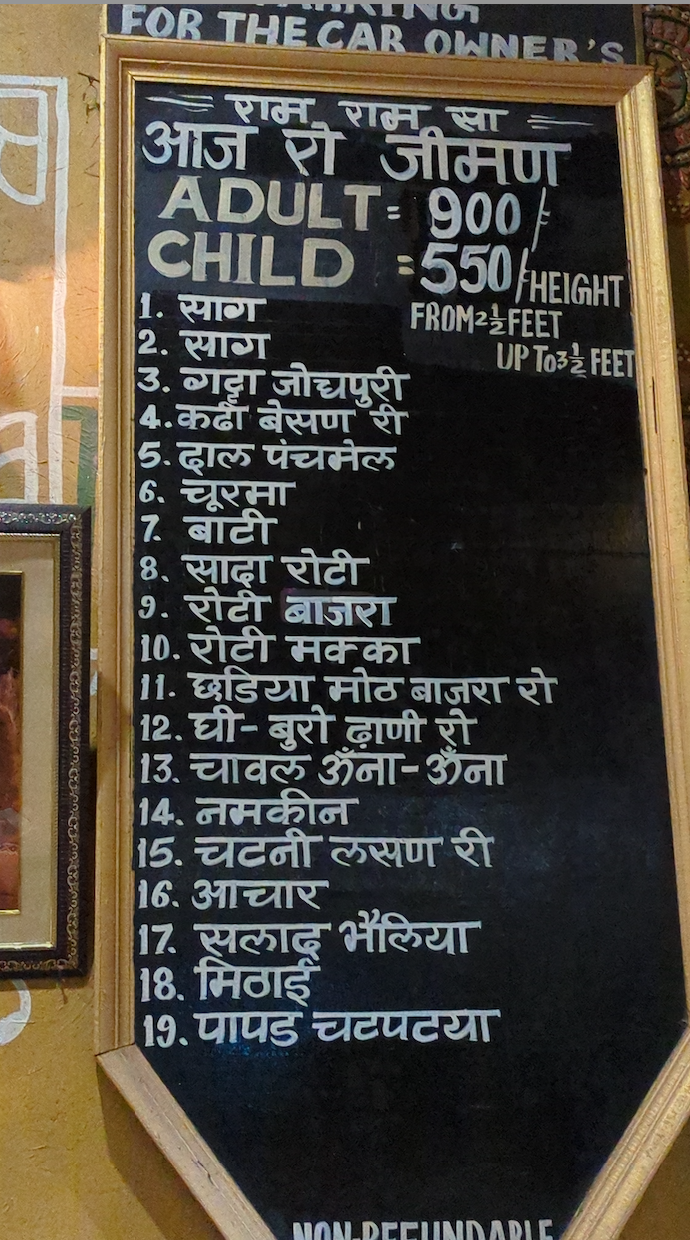 PARKING
FOR THE CAR OWNER'S
राम राम सा
आज रो जीमण
ADULT = 900/-
CHILD = 550/- HEIGHT
FROM 2½ FEET
UP TO 3½ FEET
1. साग
2. साग
3. गट्टा जोधपुरी
4. कढी बेसण री
5. दाल पंचमेल
6. चूरमा
7. बाटी
8. सादा रोटी
9. रोटी बाजरा
10. रोटी मक्का
11. छडिया मोठ बाजरा रो
12. घी-बुरो ढ़ाणी रो
13. चावल ऊँना-ऊँना
14. नमकीन
15. चटनी लसण री
16. आचार
17. सलाद भैंलिया
18. मिठाई
19. पापड चटपटया
NON-REFUNDABLE